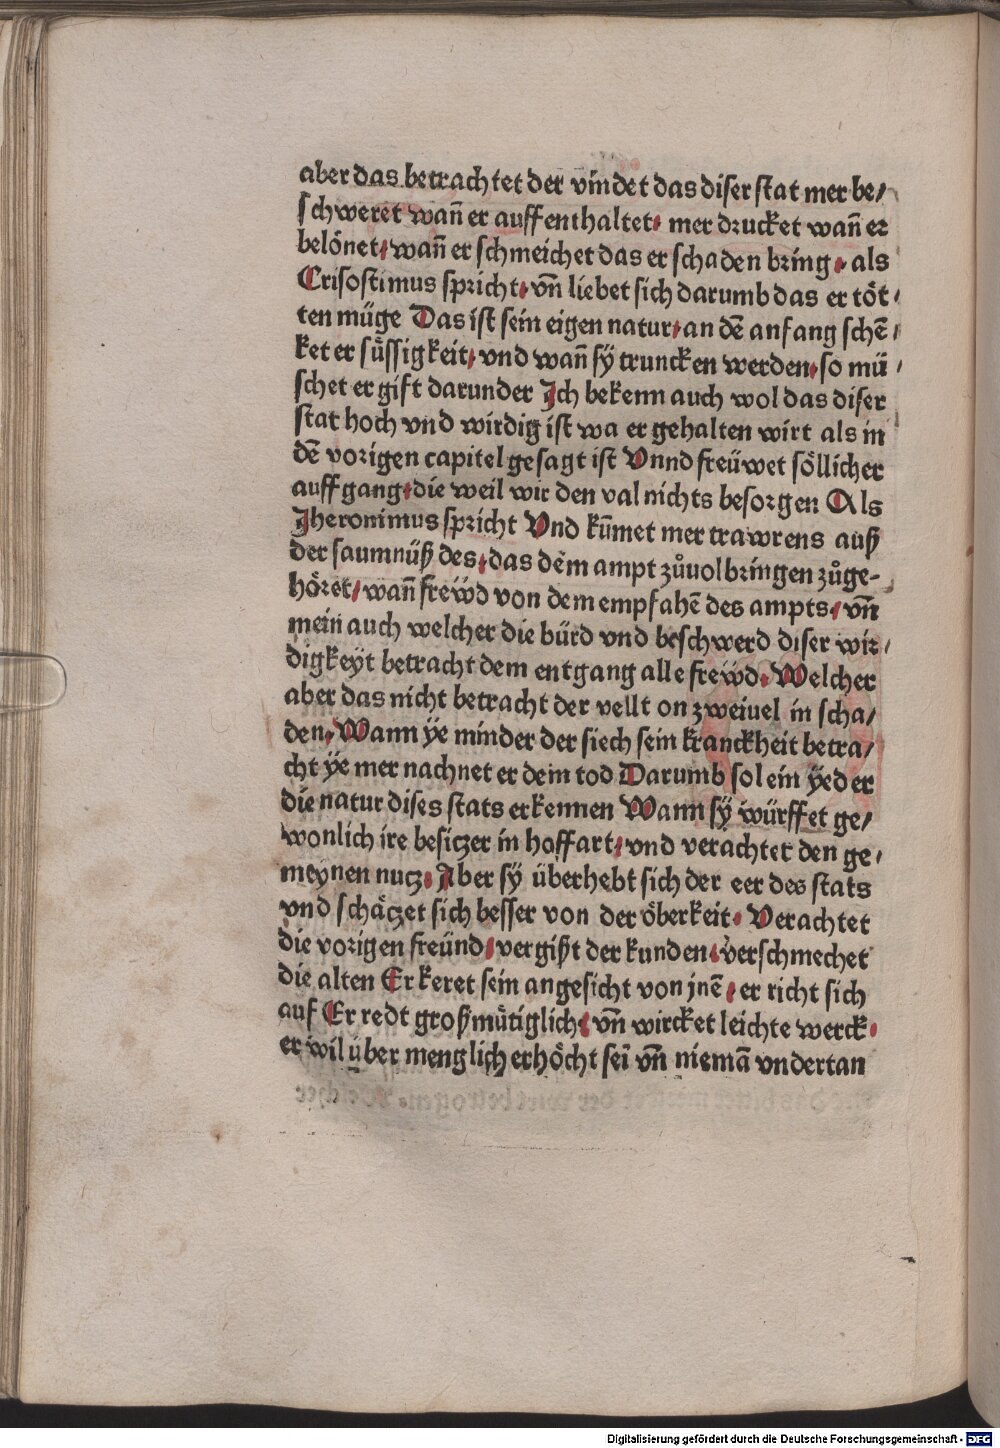 aber das betrachtet der vindet das diser stat mer be/
schweret wañ er auffenthaltet/ mer drucket wañ er
belönet/ wañ er schmeichet das er schaden bring/ als
Crisostimus spricht/ vñ liebet sich darumb das er töt/
ten müge Das ist sein eigen natur/ an dē anfang schē/
ket er süssigkeit/ vnd wañ sÿ truncken werden/ so mü/
schet er gift darunder Ich bekenn auch wol das diser
stat hoch vnd wirdig ist wa er gehalten wirt als in
dē vorigen capitel gesagt ist Vnnd freüwet söllicher
auffgang/ die weil wir den val nichts besorgen Als
Jheronimus spricht Vnd kūmet mer trawrens auß
der saumnüß des/ das dem ampt zůuolbringen zůge-
höret/ wañ frewd von dem empfahē des ampts/ vñ
mein auch welcher die bürd vnd beschwerd diser wir/
digkeyt betracht dem entgang alle frewd/ Welcher
aber das nicht betracht der vellt on zweiuel in scha/
den/ Wann ye minder der siech sein kranckheit betra/
cht ÿe mer nachnet er dem tod Darumb sol ein ÿeder
die natur dises stats erkennen Wann sÿ würffet ge/
wonlich ire besiczer in hoffart/ vnd verachtet den ge/
meynen nucz/ Aber sÿ überhebt sich der eer des stats
vnd schäczet sich besser von der öberkeit/ Verachtet
die vorigen freünd/ vergißt der kunden/ verschmechet
die alten Er keret sein angesicht von jnē/ er richt sich
auf Er redt großmütiglich/ vñ wircket leichte werck/
er wil über menglich erhöcht sei vñ niemā vndertan
Digitalisierung gefördert durch die Deutsche Forschungsgemeinschaft - DFG